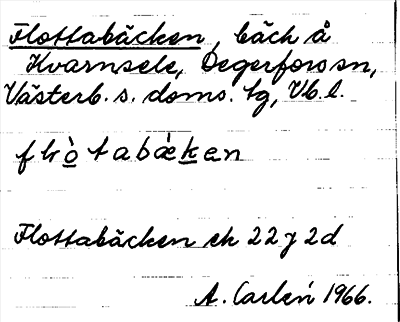 Flottabäcken, bäck å
Kvarnsele, Degerfors sn,
Västerb. s. doms. tg, Vb. l.
flò̱tabæ̀ḵen
Flottabäcken ek 22 J 2d
A. Carlén 1966.